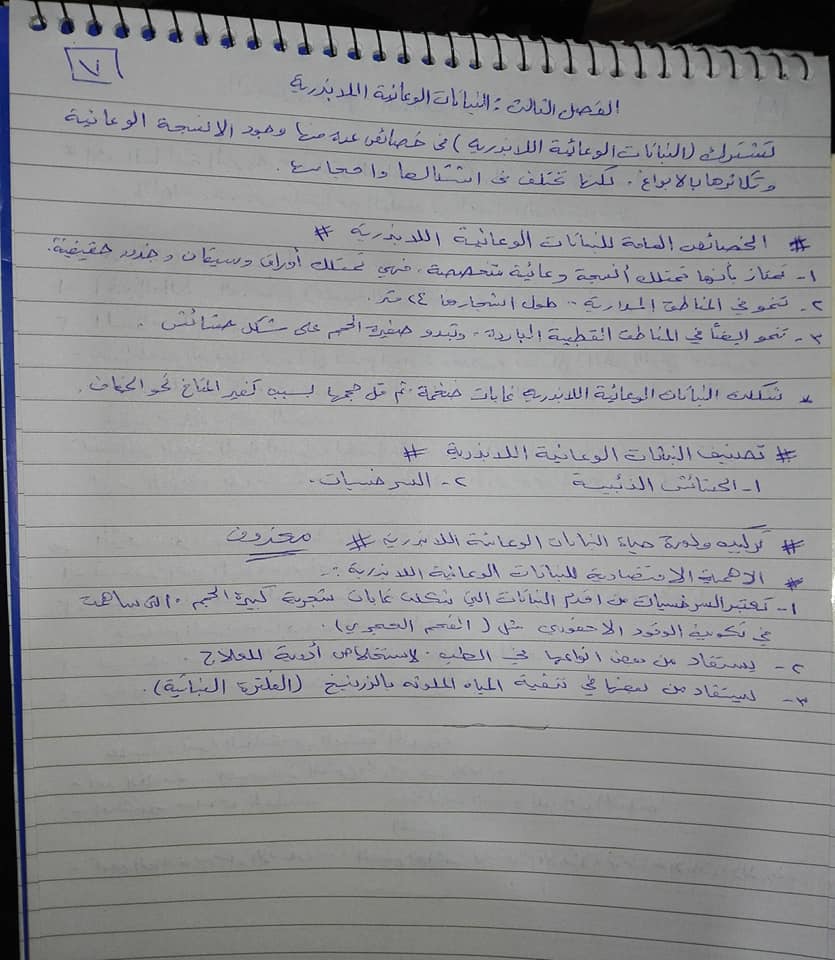 ٧
الفصل الثالث : النباتات الوعائية اللابذرية
تشترك (النباتات الوعائية اللابذرية) في خصائص عده منها وجود الانسجة الوعائية
وتكاثرها بالابواغ . لكنها تختلف في اشكالها واحجامها .
# الخصائص العامة للنباتات الوعائية اللابذرية #
١- تمتاز بأنها تمتلك أنسجة وعائية متخصصة . فهي تمتلك أوراق وسيقان وجذور حقيقية .
٢- تنمو في المناطق المدارية .. طول اشجارها ٢٤ متر .
٣- تنمو ايضاً في المناطق القطبية الباردة . وتبدو صغيرة الحجم على شكل حشائش .
* شكلت النباتات الوعائية اللابذريه غابات ضخمة . ثم قل حجمها بسبب تغير المناخ نحو الجفاف .
# تصنيف النباتات الوعائية اللابذرية #
١- الحشائش الذئبية ٢- السرخسيات .
# تركيب ودورة حياة النباتات الوعائية اللابذريه # محذوف
* الاهمية الاقتصادية للنباتات الوعائية اللابذرية :-
١- تعتبر السرخسيات من اقدم النباتات التي شكلت غابات شجرية كبيرة الحجم . التي ساهمت
في تكوين الوقود الاحفوري مثل ( الفحم الحجري ) .
٢- يستفاد من بعض انواعها في الطب . لاستخلاص أدوية للعلاج .
٣- يستفاد من بعضها في تنقية المياه الملوثه بالزرنيخ (الفلترة النباتية) .